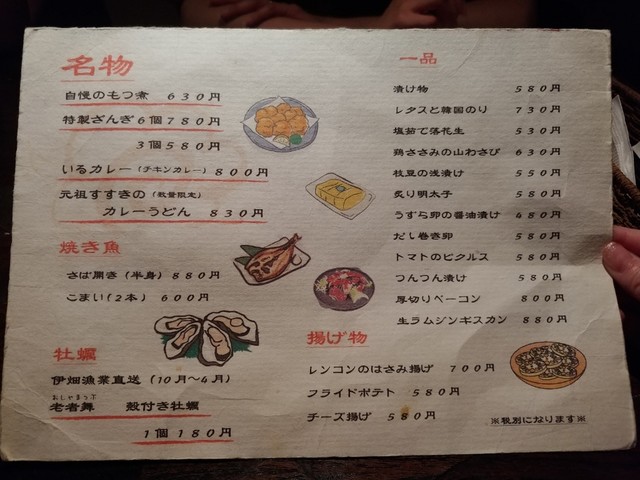 名物
自慢のもつ煮 630円
特製ざんぎ6個780円
3個580円
いるカレー(チキンカレー)800円
元祖すすきの(数量限定)
カレーうどん 830円
焼き魚
さば開き(半身)880円
こまい(2本) 600円
牡蠣
伊畑漁業直送(10月〜4月)
おしゃまっぷ
老者舞 殻付き牡蠣
1個180円
一品
漬け物 580円
レタスと韓国のり 730円
塩茹で落花生 530円
鶏ささみの山わさび 630円
枝豆の浅漬け 550円
炙り明太子 580円
うずら卵の醤油漬け 480円
だし巻き卵 580円
トマトのピクルス 580円
つんつん漬け 580円
厚切りベーコン 800円
生ラムジンギスカン 880円
揚げ物
レンコンのはさみ揚げ 700円
フライドポテト 580円
チーズ揚げ 580円
※税別になります※